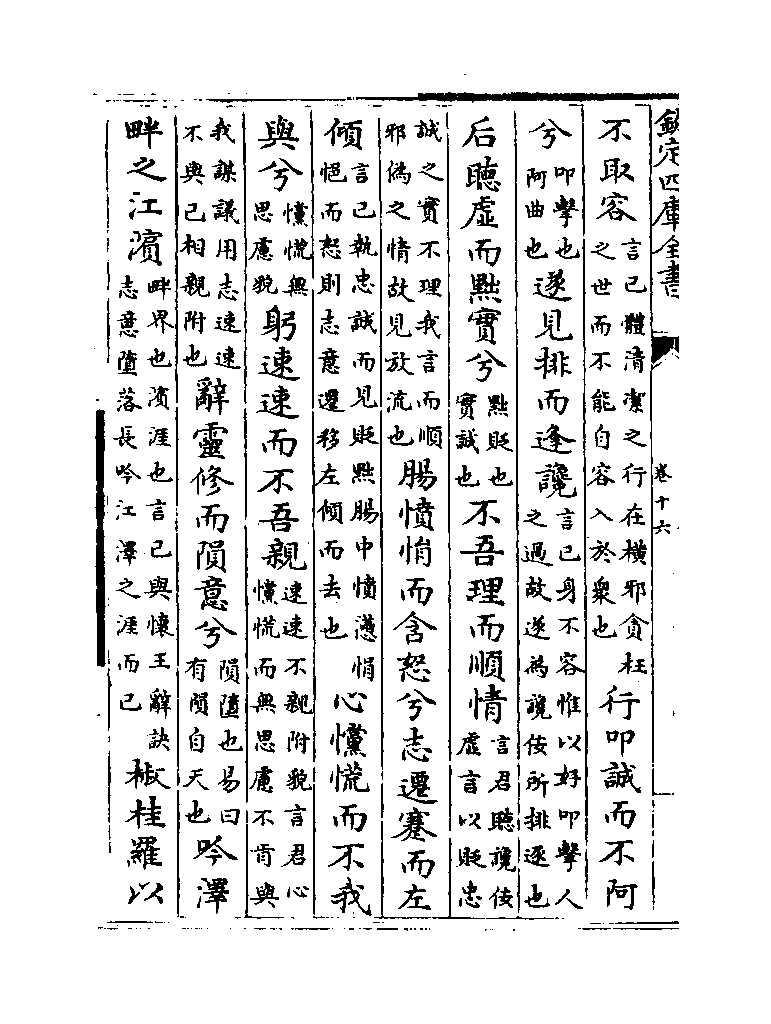 欽定四庫全書 卷十六
不取容言己體清潔之行在橫邪貪枉之世而不能自容入於衆也行叩誠而不阿
兮叩擊也阿曲也遂見排而逢讒言己身不容惟以好叩擊人之過故遂為讒佞所排逐也
后聽虛而黜實兮黜貶也實誠也不吾理而順情言君聽讒佞虛言以貶忠
誠之實不理我言而順邪偽之情故見放流也腸憤悁而含怒兮志遷蹇而左
傾言己執忠誠而見貶黜腸中憤懣悁悒而怒則志意遷移左傾而去也心戃慌而不我
與兮戃慌無思慮貌躬速速而不吾親速速不親附貌言君心戃慌而無思慮不肯與
我謀議用志速速不與己相親附也辭靈修而隕意兮隕墮也易曰有隕自天也吟澤
畔之江濱畔界也濱涯也言己與懷王辭訣志意墮落長吟江澤之涯而已椒桂羅以